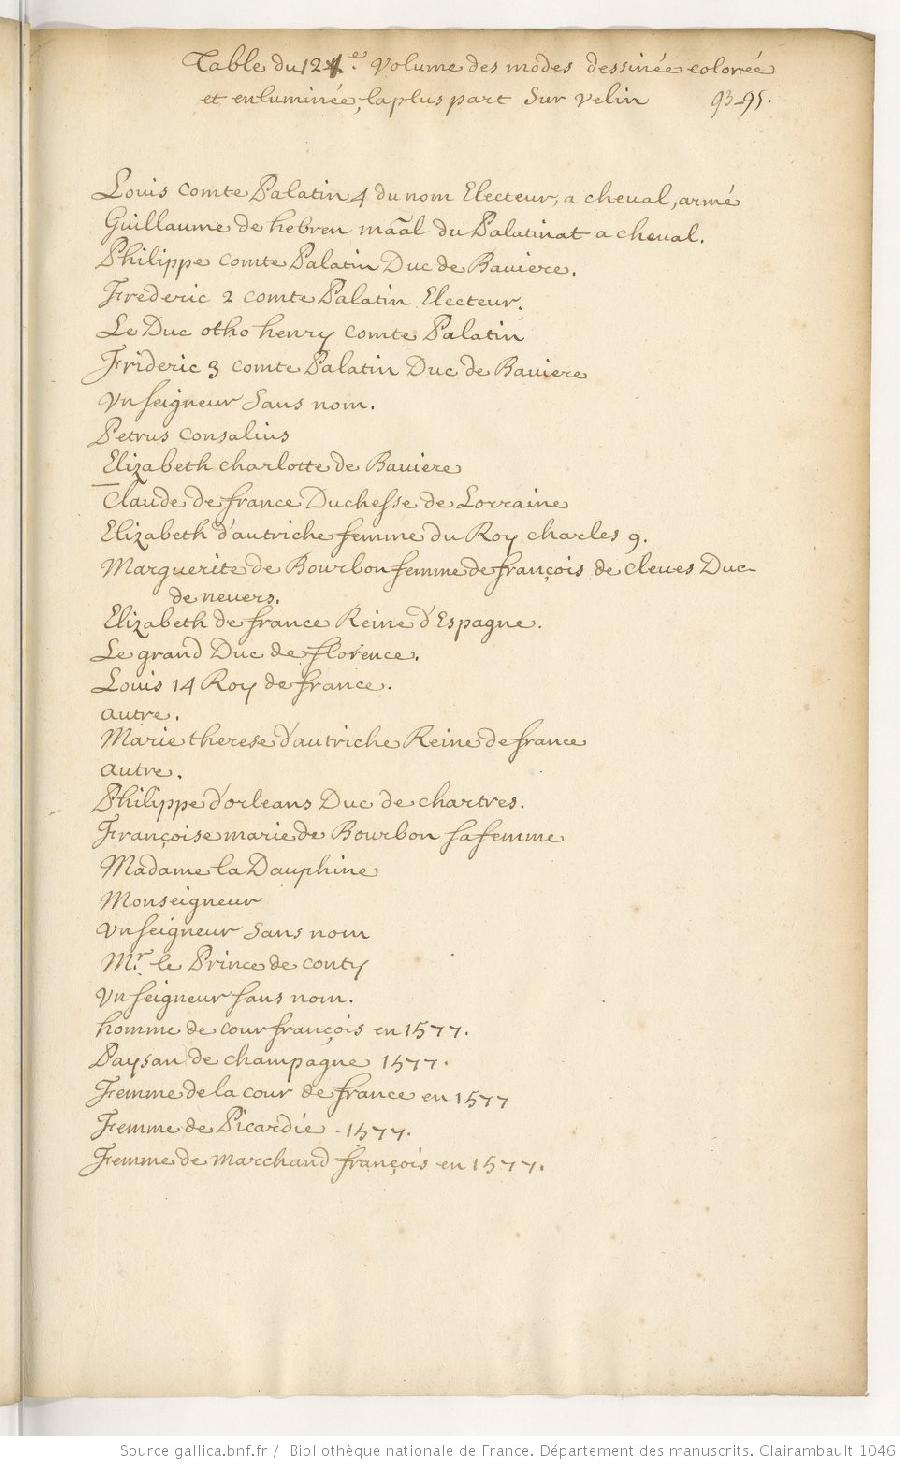 Table du 12e. Volume des modes dessinée colorée
et enluminée, la plus part Sur velin 93-95.
Louis comte Palatin 4 du nom Electeur, a cheval, armé
Guillaume de hebren maal du Palatinat a cheval.
Philippe comte Palatin Duc de Baviere.
Frederic 2 comte Palatin Electeur.
Le Duc otho henry comte Palatin
Frideric 3 comte Palatin Duc de Baviere
Vn seigneur Sans nom.
Petrus Consalius
Elizabeth charlotte de Baviere
Claude de france Duchesse de Lorraine
Elizabeth d'autriche femme du Roy charles 9.
Marguerite de Bourbon femme de françois de cleves Duc
de nevers.
Elizabeth de france Reine d'Espagne.
Le grand Duc de florence.
Louis 14 Roy de france.
autre.
Marie therese d'autriche Reine de france
autre.
Philippe d'orleans Duc de chartres.
Françoise marie de Bourbon sa femme
Madame la Dauphine
Monseigneur
Vn seigneur Sans nom
Mr. le Prince de conty
Vn seigneur sans nom.
homme de cour françois en 1577.
Paysan de champagne 1577.
Femme de la cour de france en 1577
Femme de Picardie - 1577.
Femme de marchand françois en 1577.
Source gallica.bnf.fr / Bibliothèque nationale de France. Département des manuscrits. Clairambault 1046